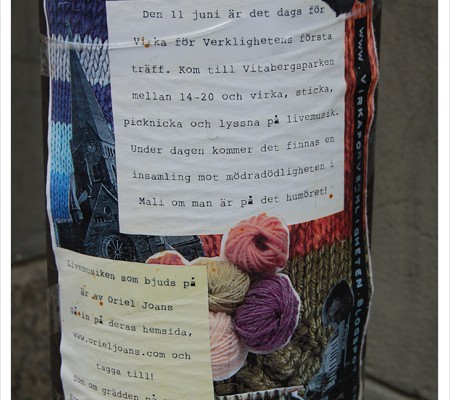 Den 11 juni är det dags för
Virka för Verklighetens första
träff. Kom till Vitabergsparken
mellan 14-20 och virka, sticka,
picknicka och lyssna på livemusik.
Under dagen kommer det finnas en
insamling mot mödradödligheten i
Mali om man är på det humöret!
Livemusiken som bjuds på
är av Oriel Joans
Gå in på deras hemsida,
www.orieljoans.com och
tagga till!
Som om grädden på
WWW.VIRKAFORVERKLIGHETEN.BLOGSPO